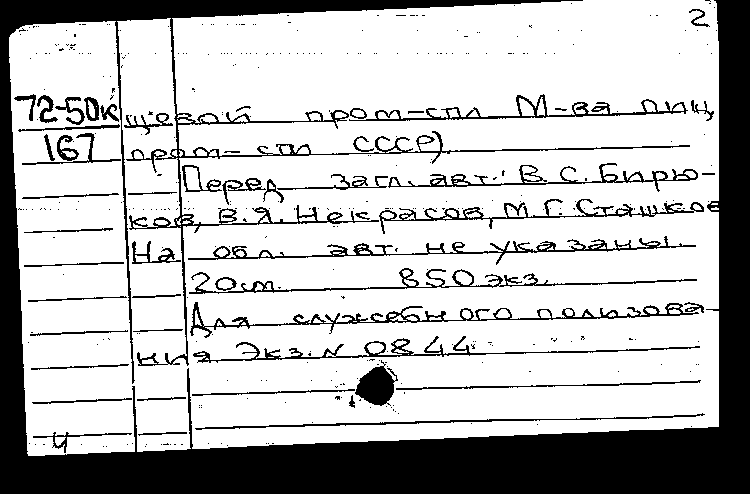 2
72-50к щевой пром-сти М-ва пищ.
167 пром-сти СССР)
Перед загл. авт.: В.С. Бирю-
ков, В.Я. Некрасов, М.Г. Сташков
На обл. авт. не указаны.
20см. 850 экз.
Для служебного пользова-
ния Экз. N 0844
ч